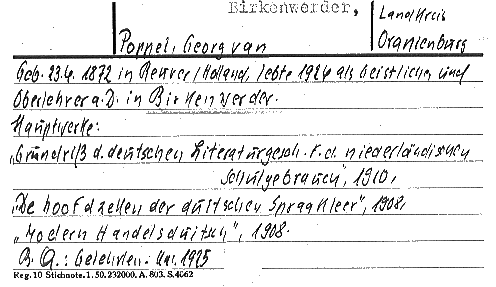 Birkenwerder,
Landkreis
Oranienburg
Poppel, Georg van
Geb. 23.4. 1872 in Reuver/Holland, lebte 1924 als Geistlicher und
Oberlehrer a. D. in Birkenwerder.
Hauptwerke:
"Grundriß d. deutschen Literaturgesch. f. d. niederländischen
Schulgebrauch", 1910,
"De hoofdzellen der duitschen Spraakleer", 1908,
"Modern Handelsduitsch", 1908.
B. Q.: Gelehrten-Kal. 1925
Reg. 10 Stichnote. 1. 50. 232000. A. 803. S. 4062